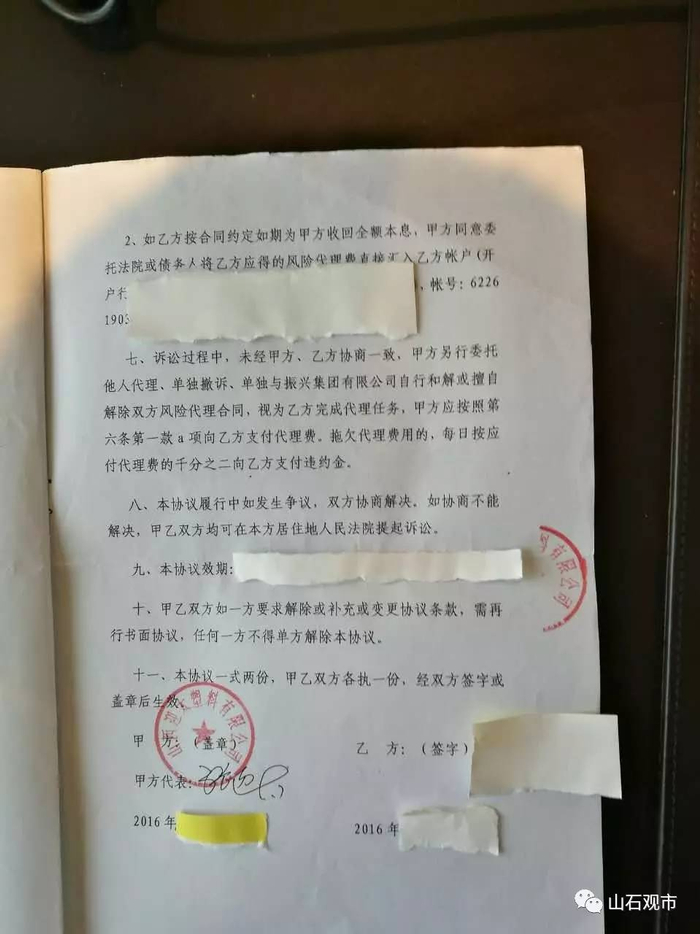 2、如乙方按合同约定如期为甲方收回全额本息，甲方同意委
托法院或债务人将乙方应得的风险代理费直接汇入乙方帐户（开
户行
，帐号：6226
1903
七、诉讼过程中，未经甲方、乙方协商一致，甲方另行委托
他人代理、单独撤诉、单独与振兴集团有限公司自行和解或擅自
解除双方风险代理合同，视为乙方完成代理任务，甲方应按照第
六条第一款 a 项向乙方支付代理费。拖欠代理费用的，每日按应
付代理费的千分之二向乙方支付违约金。
八、本协议履行中如发生争议，双方协商解决。如协商不能
解决，甲乙双方均可在本方居住地人民法院提起诉讼。
九、本协议效期：
有限公司
十、甲乙双方如一方要求解除或补充或变更协议条款，需再
行书面协议，任何一方不得单方解除本协议。
十一、本协议一式两份，甲乙双方各执一份，经双方签字或
盖章后生效。
塑料有限公司
甲 方：（盖章）
乙 方：（签字）
甲方代表：
2016 年
2016 年
山石观市